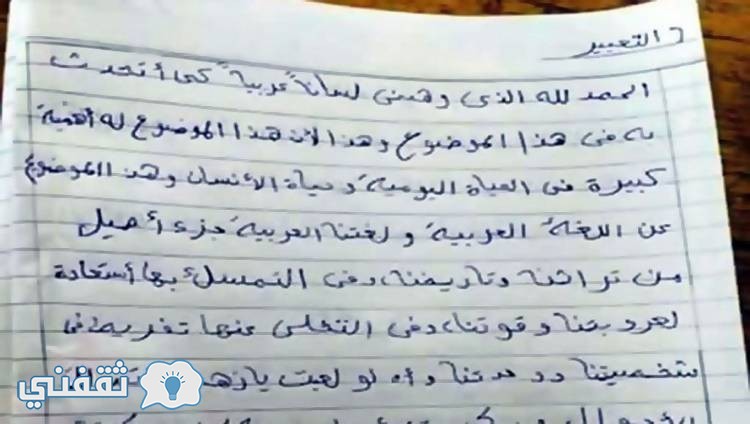 التعبير
الحمد لله الذى وهبنى لساناً عربيةً كى أتحدث
به فى هذا الموضوع وهذا لأن هذا الموضوع له أهمية
كبيرة فى الحياة اليومية وحياة الأنسان وهذا الموضوع
عن اللغة العربية ولغتنا العربية جزء أصيل
من تراثنا وتاريخنا، وفى التمسك بها أستعادة
لعروبتنا وقوتنا، وفى التخلى عنها تفريط فى
شخصيتنا ووحدتنا وأه لو لعبت يازهر
ثقفني